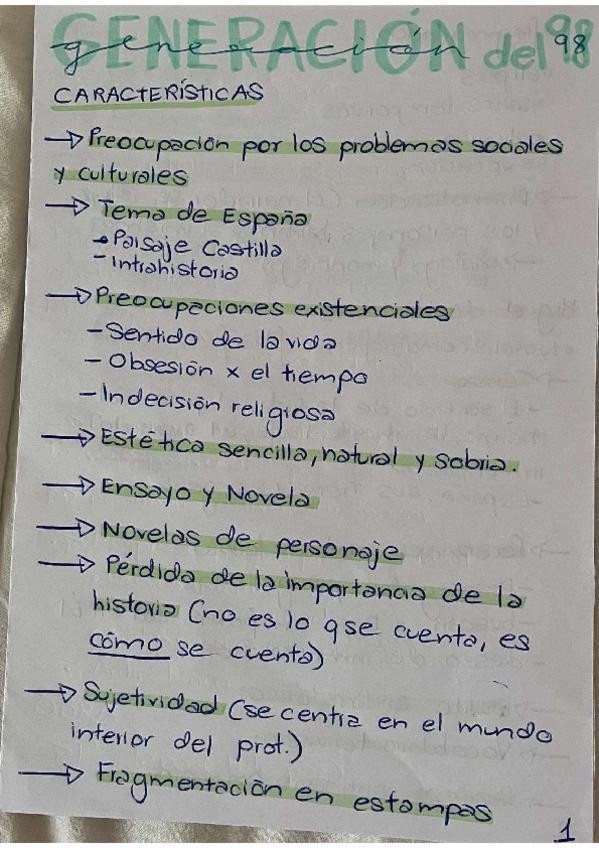 GENERACIÓN del 98
generación 98
CARACTERÍSTICAS
→ Preocupación por los problemas sociales
y culturales
→ Tema de España
→ Paisaje Castilla
- Intrahistoria
→ Preocupaciones existenciales
- Sentido de la vida
- Obsesión x el tiempo
- Indecisión religiosa
→ Estética sencilla, natural y sobria.
→ Ensayo y Novela
→ Novelas de personaje
→ Pérdida de la importancia de la
historia (no es lo q se cuenta, es
cómo se cuenta)
→ Sujetividad (se centra en el mundo
interior del prot.)
→ Fragmentación en estampas
1